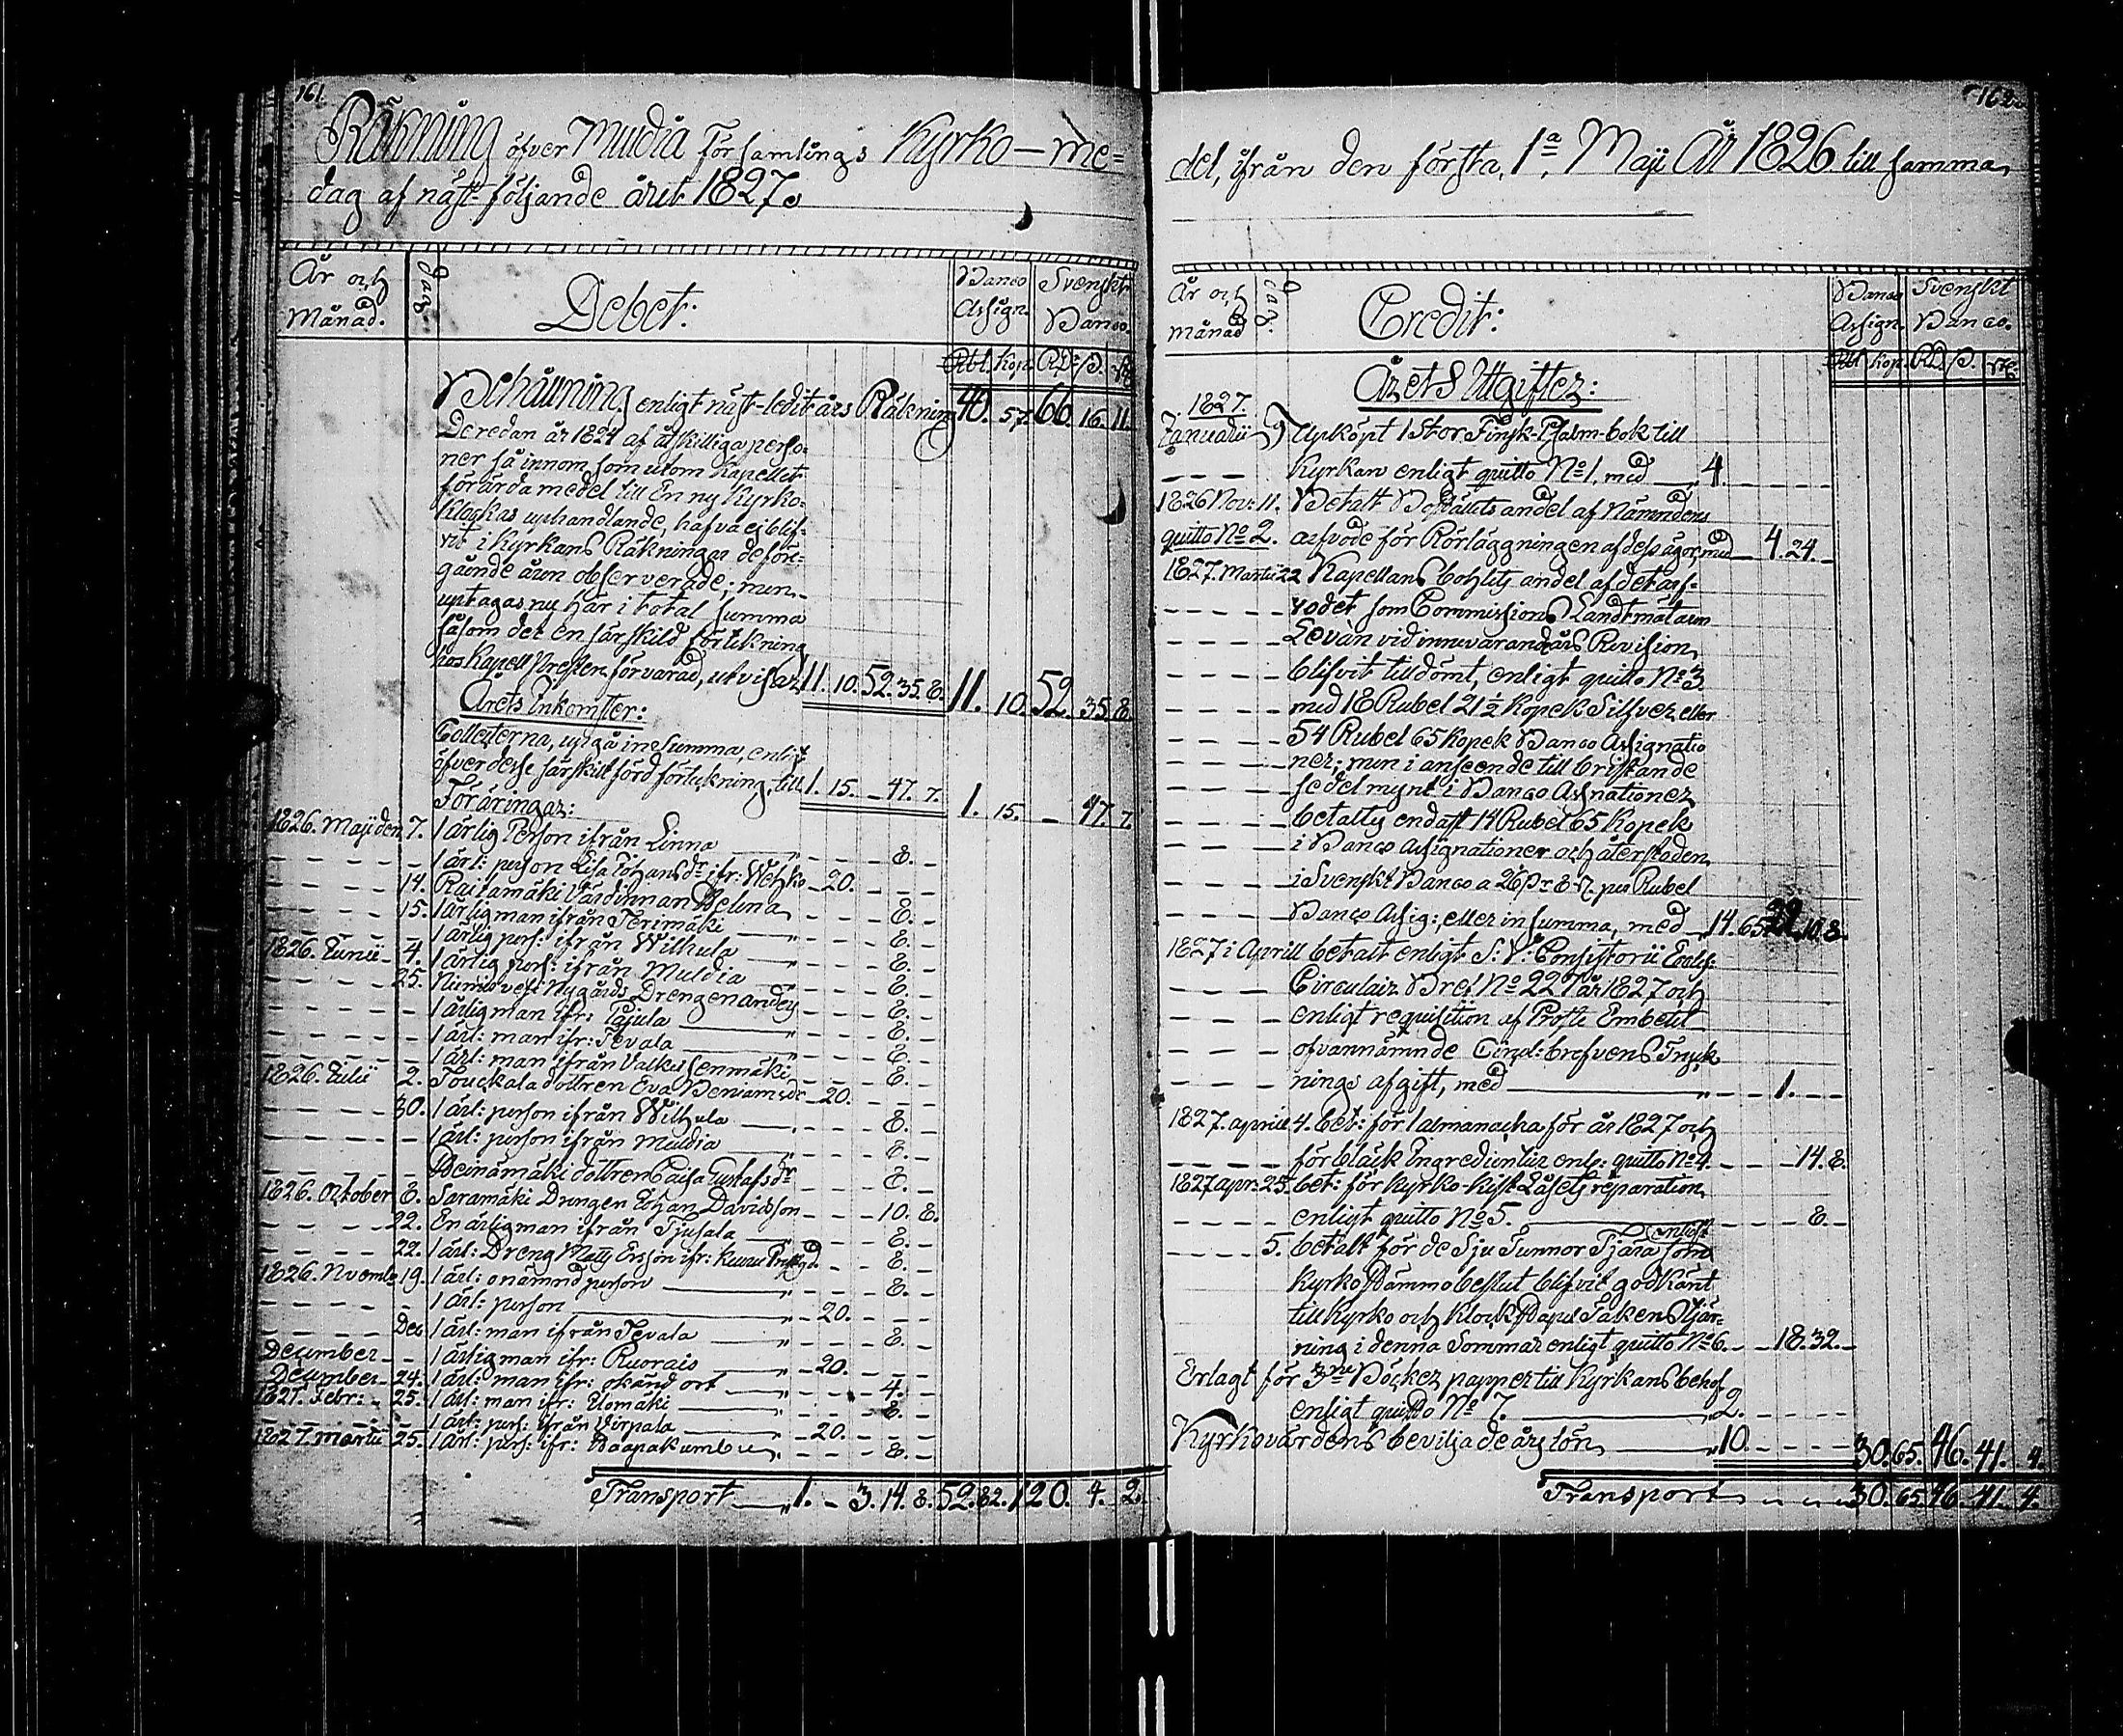 161.
Räkning öfver Muldia Församlings Kyrko-me=
dag af näst-följande året 1827.
År och
Månad.
Dag.
Debet:
Banco
Assign.
Svenskt
Banco.
Rbl. Kop. RD: s. rst
Behållning enligt näst-ledit års Räkning 40. 57. 66. 16. 11.
De redan år 1824 af åtskilliga perso-
ner så innom som utom Kapellet
förärda medel till En ny Kyrko-
klockas uphandlande, hafva ej blif-
vit i Kyrkans Räkningar de före-
gående åren observerade; men
uptagas nu här i total summa
såsom det en särskild förtekning
hos Kapell Presten förvarad, utvisar 11. 10. 52. 35. 8. 11. 10. 52. 35. 8.
Årets Inkomster:
Collecterna, upgå in summa, enligt
öfver desse särskilt förd förtekning, till 1. 15. - 47. 7. 1. 15. - 47. 7.
Föräringar:
1826. Maji den 7. 1 ärlig Person ifrån Linna 8. -
1 ärl: person Lisa Johansdr ifr: Wehko - 20. - -
14. Rautamäki Värdinnan Helena 8. -
15. 1 ärlig man ifrån Terimäki 8. -
1 ärlig pers: ifrån Wilhula 8. -
1826. Junii - 4. 1 ärlig pers: ifrån Muldia 8. -
25. Niemisvesi Nygårds Drengen andey 8. -
1 ärlig man ifr: Pajula 8. -
1 ärl: man ifr: Tevala 8. -
1 ärl: man ifrån Valkeisenmäki 8. -
1826. Julii 2. Touckala dottren Eva Beniamsdr - 20. - -
30. 1 ärl: person ifrån Wilhula 8. -
1 ärl: person ifrån Muldia 8. -
Heinämäki dottren Caisa Gustafsdr 8. -
1826. October 8. Saramäki Drengen Johan Davidsson - - - 10. 8.
22. En ärlig man ifrån Tjusala 8. -
22. 1 ärl: Dreng Matts Ersson ifr: Keuru Prestgd. 8. -
1826. Novemb: 19. 1 ärl: onämnd person 8. -
1 ärl: person - 20. - -
Dec 1 ärl: man ifrån Tevala 8. -
December - - 1 ärlig man ifr: Ruorais - 20. - -
December - 24. 1 ärl: man ifr: okänd ort 4. -
1827. Febr: - 25. 1 ärl: man ifr: Ulomäki 8. -
1 ärl: pers: ifrån Virpala - 20. - -
1827. Martii 25. 1 ärl: pers: ifr: Haapakumbu 8. -
Transport 1. - 3. 14. 8. 52. 82. 120. 4. 2.
162.
del, ifrån den första, 1a. Maji År 1826. till samma
År och
månad
Dag.
Credit:
Banco
Assign.
Svenskt
Banco.
Rbl kop. RD. s. rst
Årets Utgifter:
1827.
Januarii 9 Upköpt 1 stor Finsk-Psalm-bok till
Kyrkan enligt quitto No 1, med 4.
1826 Nov: 11. Betalt Boställets andel af Nämndens
quitto No 2. arfvode för Rörläggningen af dess ägor, med 4. 24. -
1827. Martii 22 Kapellans bohlets andel af det arf-
vodet som Commissions Landtmätaren
Levàn vid innevarande års Revision
blifvit tilldömt, enligt quitto No 3.
med 18 Rubel 21 1/2 Kopek Silfver, eller
54 Rubel 65 Kopek Banco Assignatio
ner; men i anseende till bristande
sedelmynt i Banco Assnationer
betalts endast 14 Rubel 65 Kopek
i Banco Assignationer och återstoden
i Svenskt Banco a 26 s: 8 r. per Rubel
Banco Assig:, eller in summa, med 14. 65 22. 10. 8.
1827 i Aprill betalt enligt S: V: Consistorii Eccles:
Circulair Bref No 227 år 1827 och
enligt requisition af Prosts Embetet
ofvannämnde Circul: brefvens Tryck
nings afgift, med 1. - -
1827. aprill 4. bet: för 1 almanacka för år 1827 och
för bläck Ingredientier enl: quitto No 4. - 14. 8.
1827 apr: 25. bet: för Kyrko-kist Låsets reparation
enligt quitto No 5. 8. -
5. betalt för de Sju Tunnor Tjära som enligt
Kyrko Stämmo beslut blifvit godkänt
till Kyrko och Klock Stapel Taken Stjär-
ning i denna Sommar enligt quitto No 6. - 18. 32. -
Erlagt för 3ne Böcker papper till Kyrkans behof
enligt quitto No 7. 2. - - -
Kyrkovärdens beviljade års lön 10. - - - 30. 65. 46. 41. 4.
Transport 30. 65. 46. 41. 4.